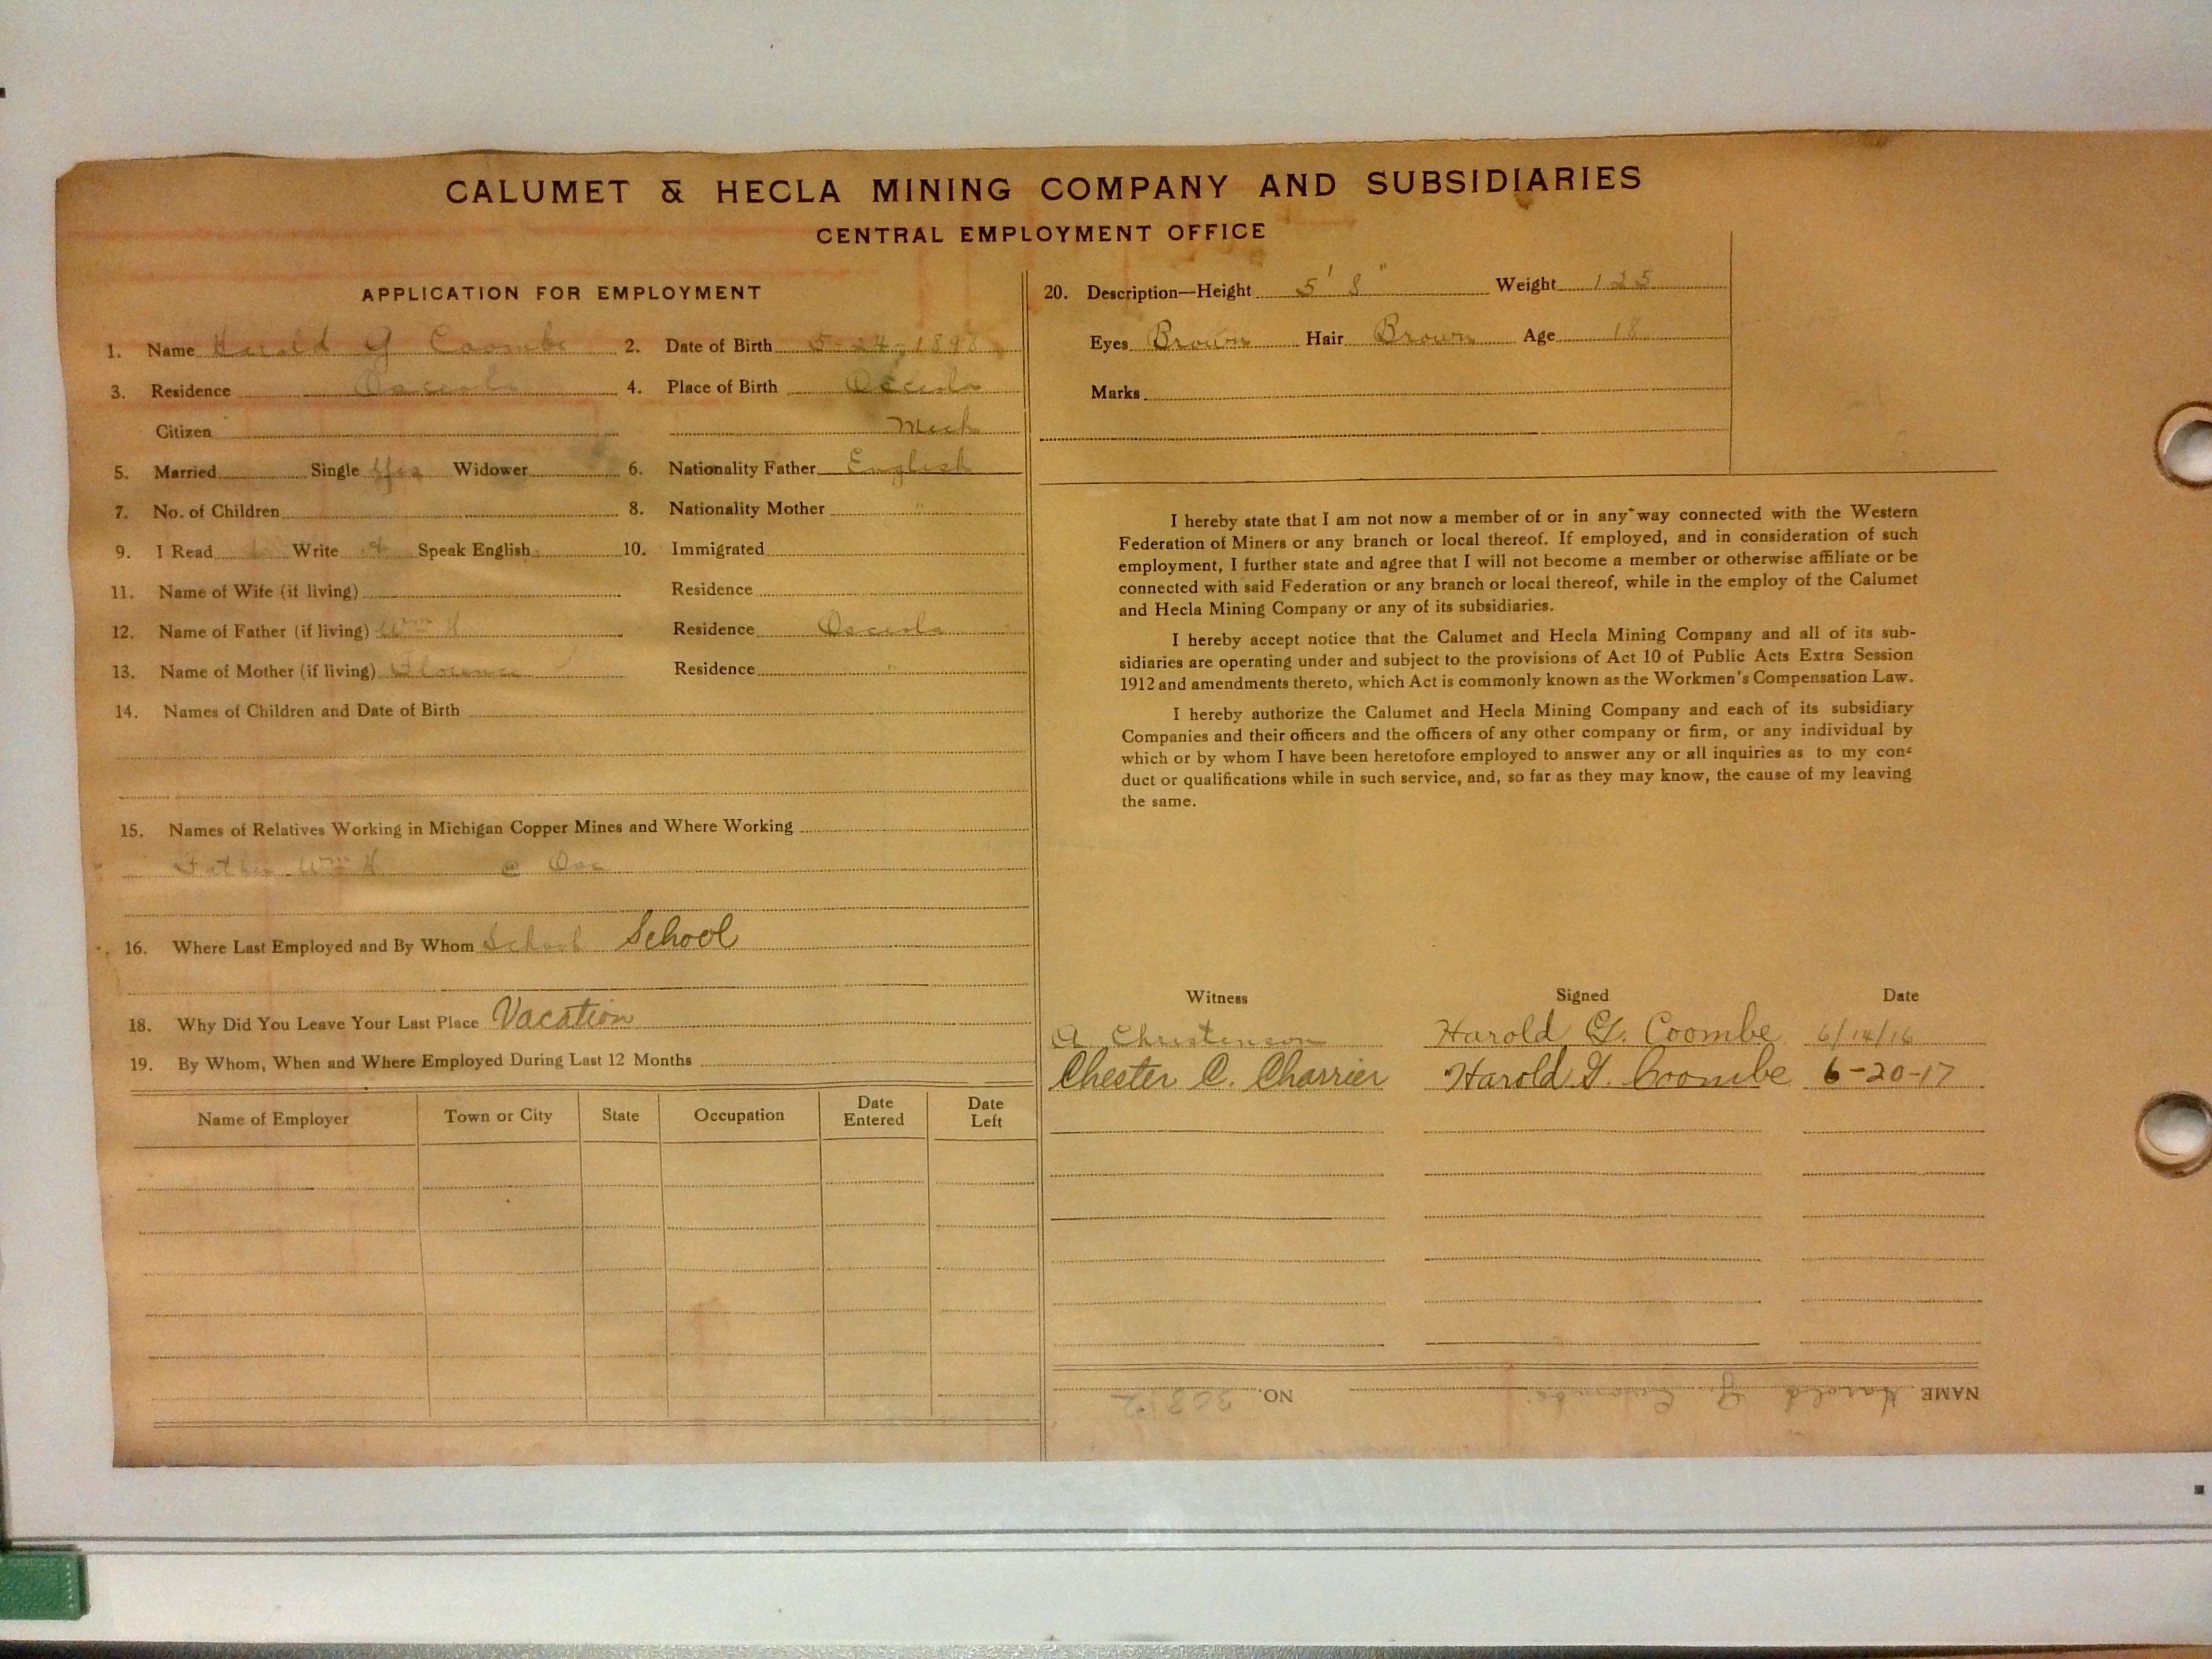 CALUMET & HECLA MINING COMPANY AND SUBSIDIARIES
CENTRAL EMPLOYMENT OFFICE
APPLICATION FOR EMPLOYMENT
1. Name Harold G Coombe 2. Date of Birth 5-24-1898
3. Residence Osceola 4. Place of Birth Osceola
Citizen Mich
5. Married Single Yes Widower 6. Nationality Father English
7. No. of Children 8. Nationality Mother "
9. I Read Write Speak English 10. Immigrated
11. Name of Wife (if living) Residence
12. Name of Father (if living) Wm H Residence Osceola
13. Name of Mother (if living) Florence Residence "
14. Names of Children and Date of Birth
15. Names of Relatives Working in Michigan Copper Mines and Where Working
Father Wm H @ Osc
16. Where Last Employed and By Whom School School
18. Why Did You Leave Your Last Place Vacation
19. By Whom, When and Where Employed During Last 12 Months
Name of Employer Town or City State Occupation Date Entered Date Left
20. Description—Height 5' 8" Weight 125
Eyes Brown Hair Brown Age 18
Marks
I hereby state that I am not now a member of or in any way connected with the Western
Federation of Miners or any branch or local thereof. If employed, and in consideration of such
employment, I further state and agree that I will not become a member or otherwise affiliate or be
connected with said Federation or any branch or local thereof, while in the employ of the Calumet
and Hecla Mining Company or any of its subsidiaries.
I hereby accept notice that the Calumet and Hecla Mining Company and all of its sub-
sidiaries are operating under and subject to the provisions of Act 10 of Public Acts Extra Session
1912 and amendments thereto, which Act is commonly known as the Workmen's Compensation Law.
I hereby authorize the Calumet and Hecla Mining Company and each of its subsidiary
Companies and their officers and the officers of any other company or firm, or any individual by
which or by whom I have been heretofore employed to answer any or all inquiries as to my con-
duct or qualifications while in such service, and, so far as they may know, the cause of my leaving
the same.
Witness Signed Date
A. Christenson Harold G. Coombe 6/14/16
Chester C. Charrier Harold G. Coombe 6-20-17
NAME Harold G. Coombe NO. 20812